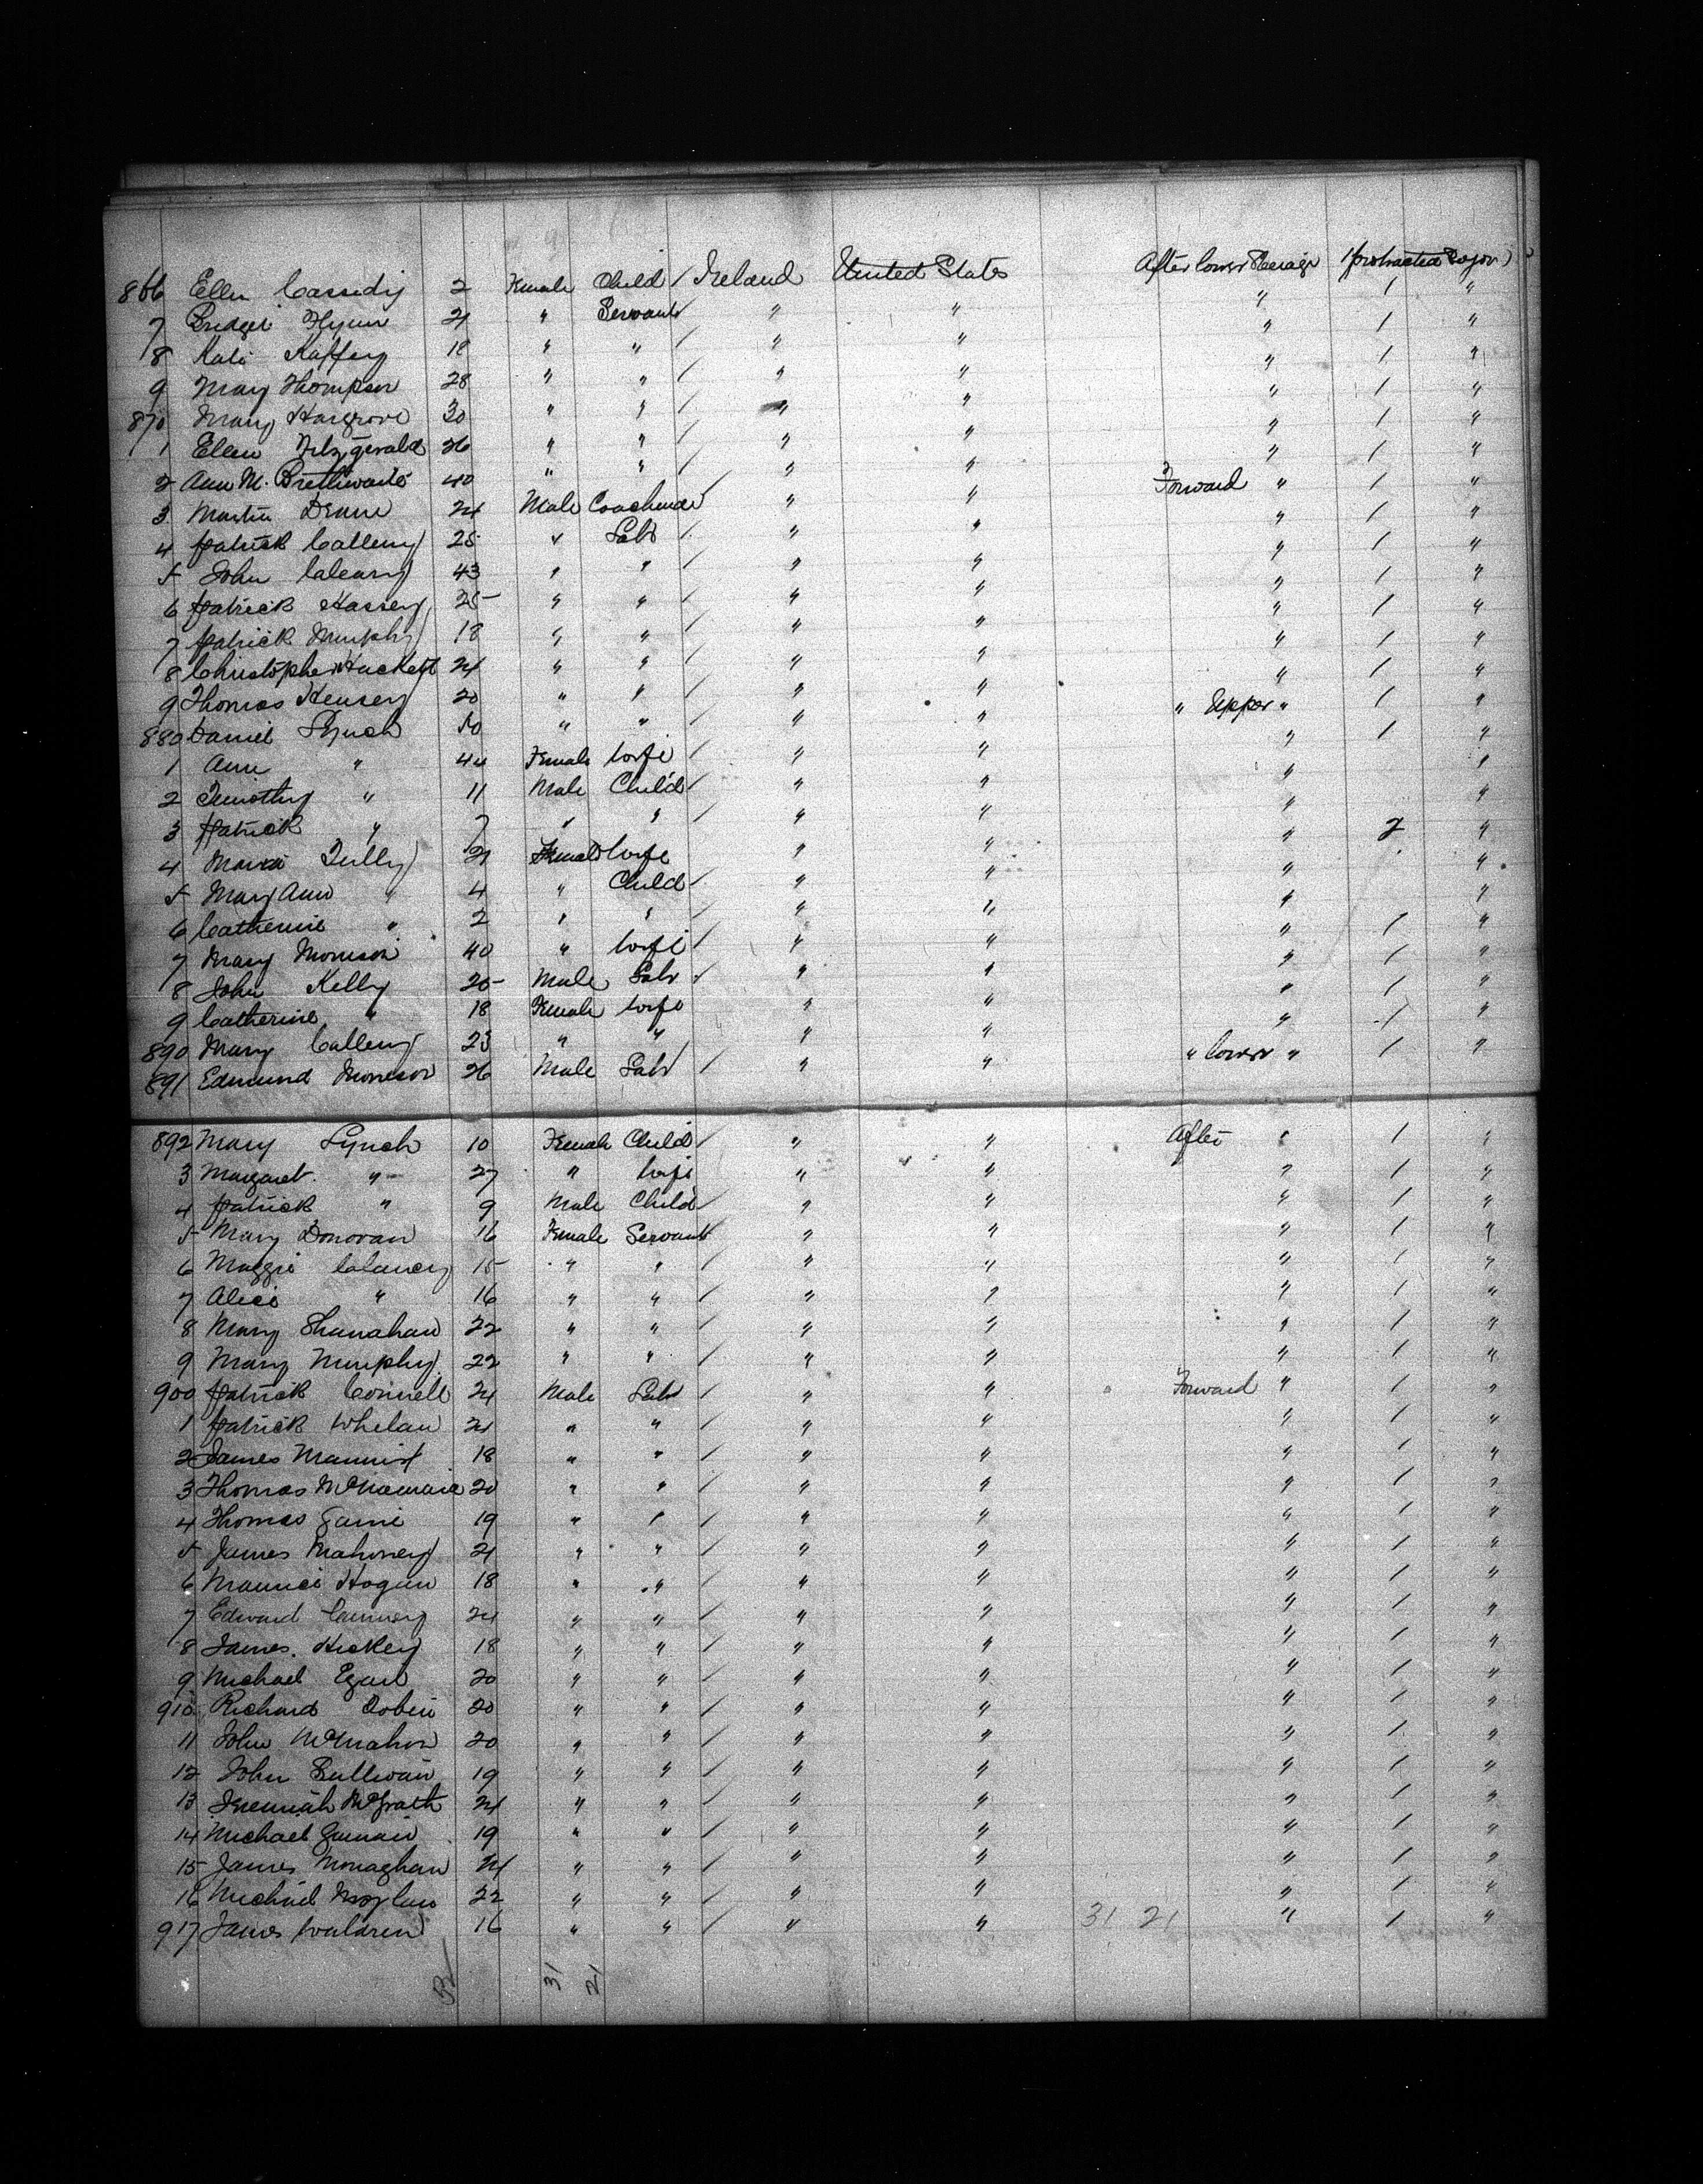 866 Ellen Cassedy 2 Female Child / Ireland United States After lower Steerage (protracted Sojor)
7 Bridget Flynn 21 " Servant " " " / "
8 Kate Kaffery 18 " " / " " " / "
9 Mary Thompson 28 " " / " " " / "
870 Mary Hargrove 30 " " / " " " / "
1 Ellen Fitzgerald 26 " " / " " " / "
2 Ann M. Brethwaite 40 " " / " " " / "
3 Martin 24 Male Coachman " " Forward " / "
4 Patrick Callery 25 " Labr / " " " / "
5 John 43 " " / " " " / "
6 Patrick Hassey 25 " " / " " " / "
7 Patrick Murphy 18 " " / " " " / "
8 Christopher Hackett 24 " " / " " " / "
9 Thomas 20 " " / " " " / "
880 Daniel Lynch 50 " " / " " " Upper " / "
1 Ann " 44 Female Wife / " " " / "
2 Timothy " 11 Male Child " " " "
3 Patrick " 7 " " / " " " "
4 Maria Tully 21 Female Wife " " " 2 "
5 Mary Ann " 4 " Child / " " " "
6 Catherine " 2 " " / " " " "
7 Mary Morrison 40 " Wife / " " " / "
8 John Kelly 25 Male Labr / " " " / "
9 Catherine " 18 Female Wife " " " / "
890 Mary Callery 23 " " " " " / "
891 Edmund Morrison 26 Male Labr / " " " lower " / "
892 Mary Lynch 10 Female Child / " " After " / "
3 Margaret " 27 " Wife " " " / "
4 Patrick " 9 Male Child " " " / "
5 Mary Donovan 16 Female Servant " " " / "
6 Maggie Calancy 15 " " / " " " / "
7 Alice " 16 " " / " " " / "
8 Mary Shanahan 22 " " / " " " / "
9 Mary Murphy 22 " " / " " " / "
900 Patrick Connell 24 Male Labr / " " Forward " / "
1 Patrick Whelan 21 " " / " " " / "
2 James 18 " " / " " " / "
3 Thomas McNamara 20 " " / " " " / "
4 Thomas 19 " " / " " " / "
5 James Mahoney 21 " " / " " " / "
6 Maurice Hogan 18 " " / " " " / "
7 Edward 24 " " / " " " / "
8 James Hickey 18 " " / " " " / "
9 Michael Egan 20 " " / " " " / "
910 Richard Tobin 20 " " / " " " / "
11 John McMahon 20 " " / " " " / "
12 John Sullivan 19 " " / " " " / "
13 Jeremiah McGrath 24 " " / " " " / "
14 Michael 19 " " / " " " / "
15 James Monaghan 24 " " / " " " / "
16 Michael Moylan 22 " " / " " " / "
917 James Waldren 16 " " / " " 31 21 " / "
52 31 21